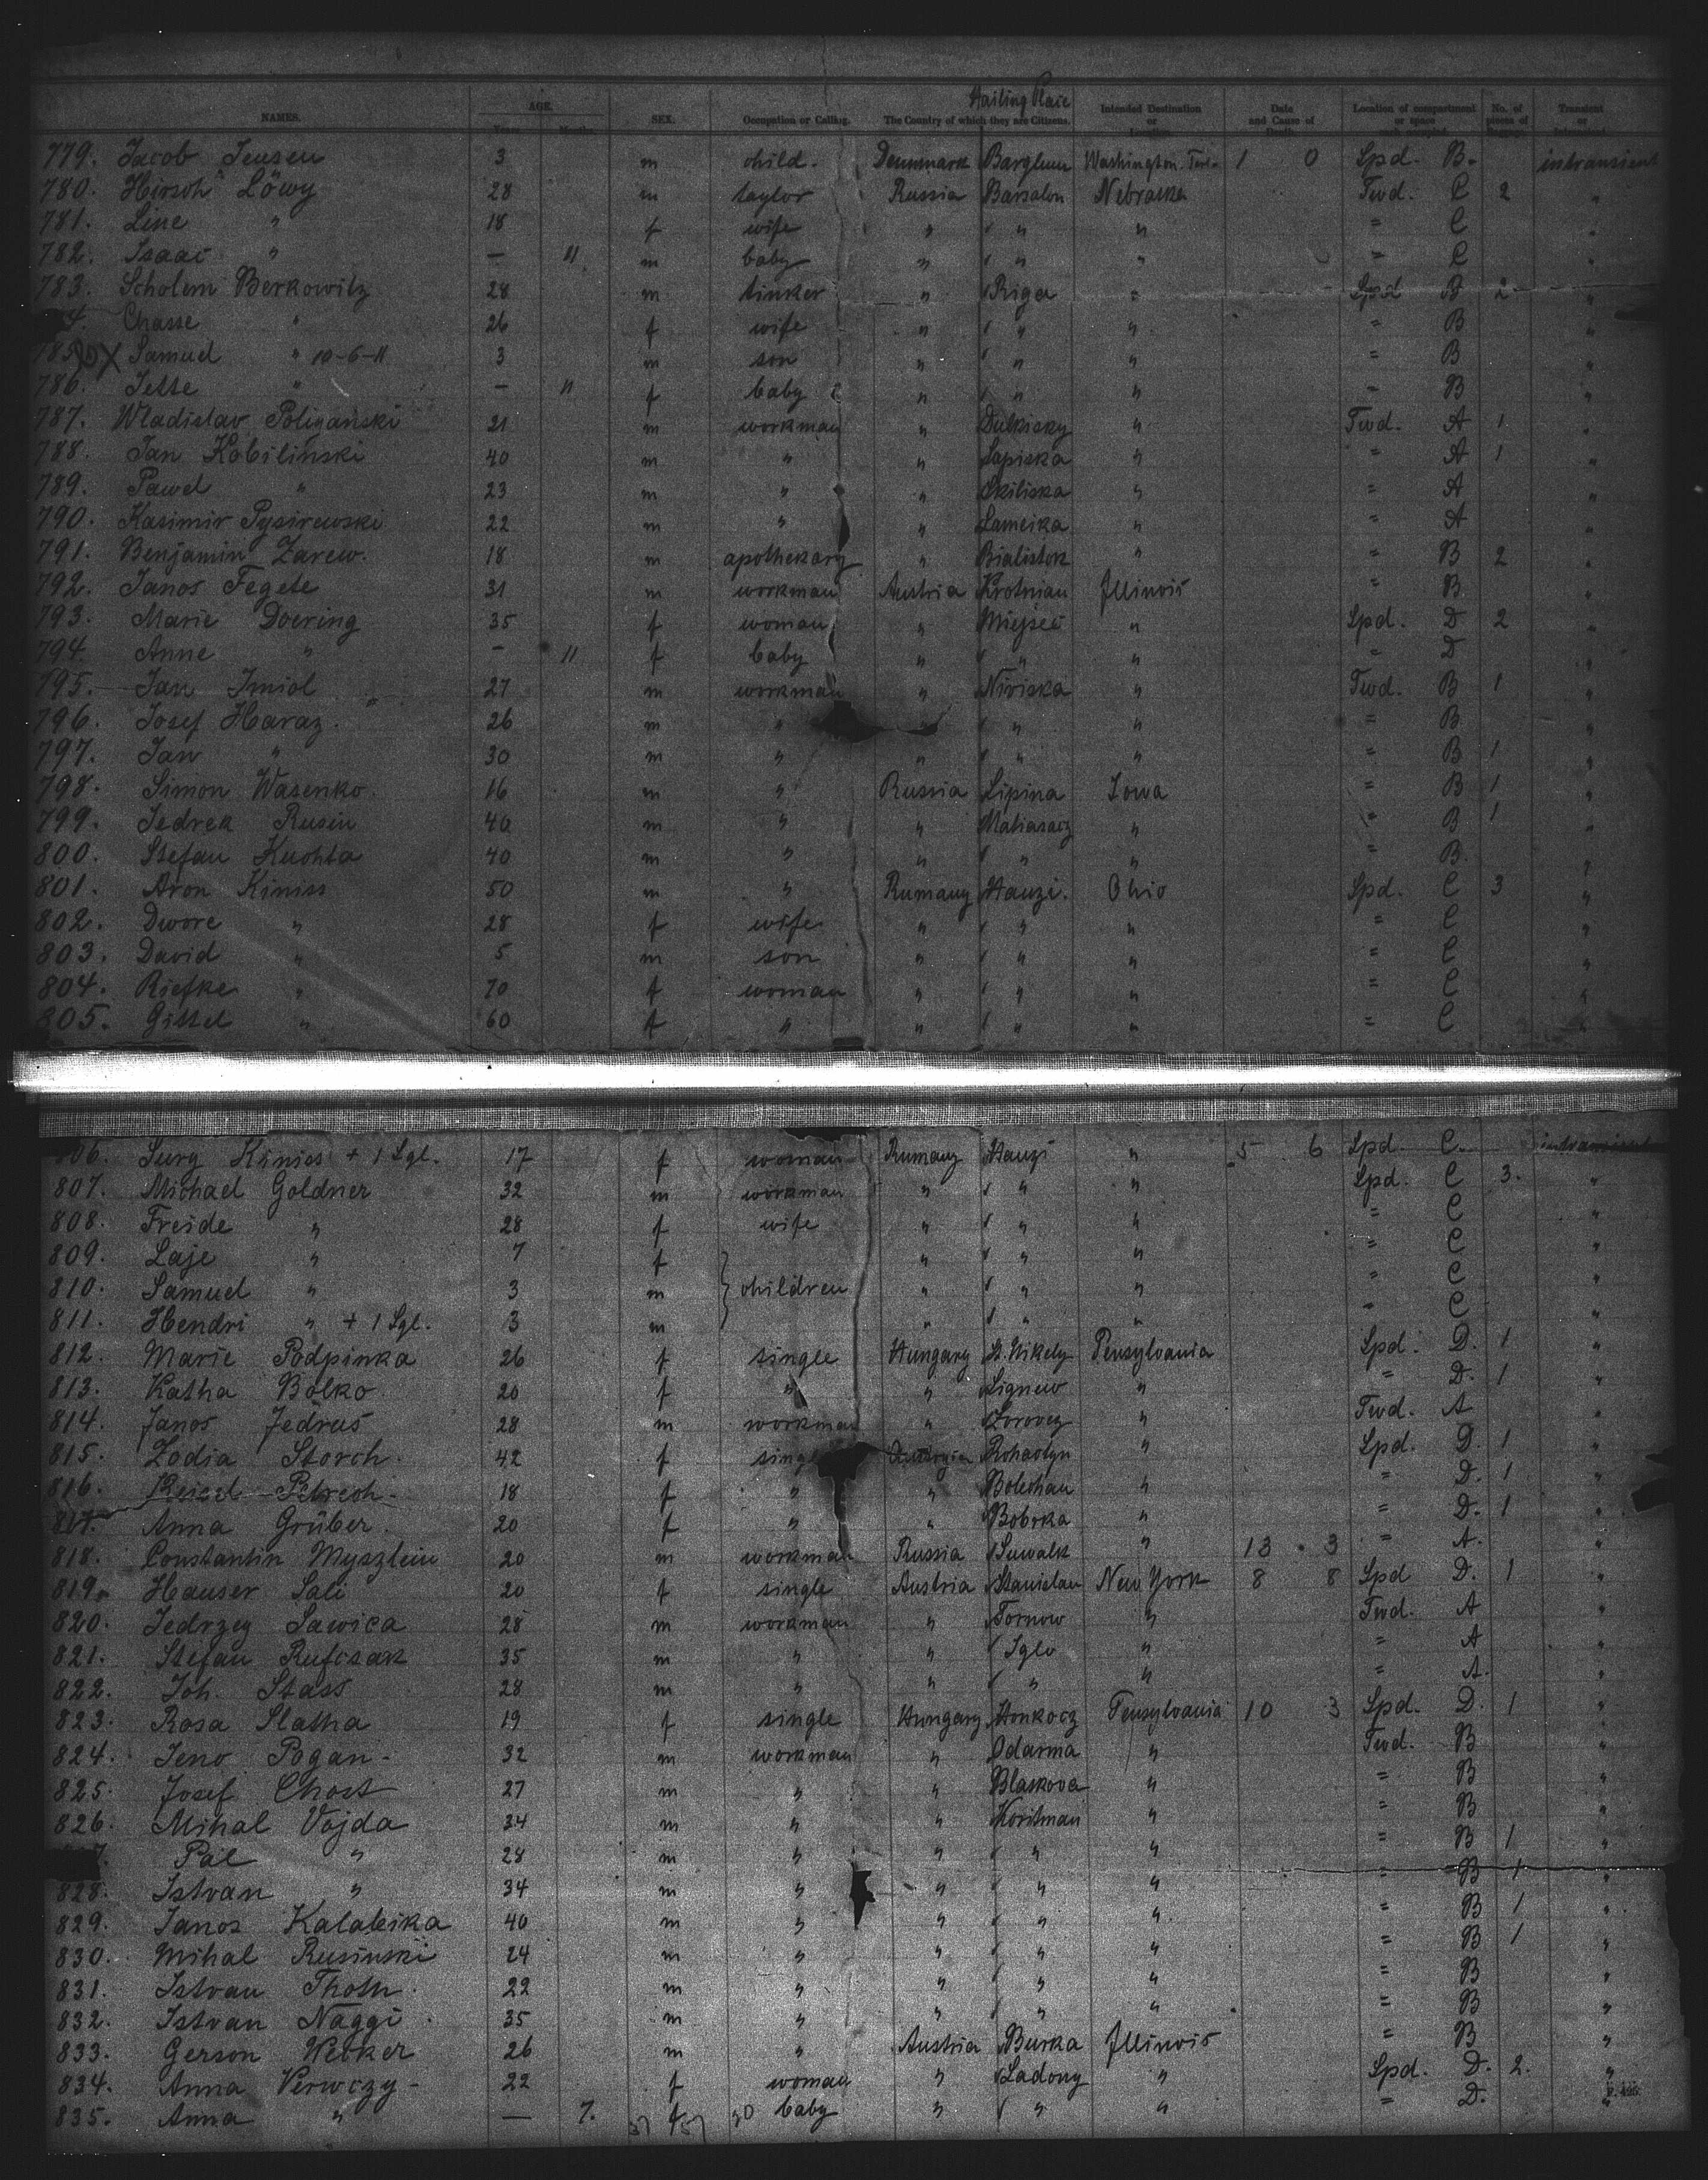 Hailing Place
NAMES. AGE. SEX. Occupation or Calling. The Country of which they are Citizens. Intended Destination or Location. Date and Cause of Death. Location of compartment or space No. of pieces of Baggage. Transient or
Years. Months.
779. Jacob Jensen 3 m child. Dennmark Barglum Washington. 1 0 Spd. B. intransient
780. Hirsch Löwy 28 m taylor Russia Barsalon Nebraska Twd. C 2 "
781. Line " 18 f wife " " " = C "
782. Isaac " — 11 m baby " " " = C "
783. Scholem Berkowitz 28 m tinker " Riga = Spd B 2 "
4. Chasse " 26 f wife " " " = B "
785 X Samuel " 10-6-11 3 m son " " " = B "
786. Jette " — 11 f baby " " " = B "
787. Wladislav Poliganski 21 m workman " Dulkisky " Twd. A 1 "
788. Jan Kobilinski 40 m " " Lapiska " = A 1 "
789. Pawel " 23 m " " Skiliska " = A "
790. Kasimir Pysirewski 22 m " " Lameika " = A "
791. Benjamin Zarew. 18 m apothekary " Bialistok " = B 2 "
792. Janos Fegete 31 m workman Austria Krotnian Illinois = B "
793. Marie Doering 35 f woman " Miejsec " Spd. D 2 "
794. Anne " — 11 f baby " " " = D "
795. Jan Imiol 27 m workman " Niviska " Twd. B 1 "
796. Josef Haraz. " 26 m " " " " = B "
797. Jan " 30 m " " " " = B 1 "
798. Simon Wasenko. 16 m " Russia Lipina Iowa = B 1 "
799. Jedrek Rusin 40 m " " Matiasacz " = B 1 "
800. Stefan Kuchta 40 m " " " " = B. "
801. Aron Kiniss 50 m " Rumany Hanzi. Ohio Spd. C 3 "
802. Dwore " 28 f wife " " " = C "
803. David " 5 m son " " " = C "
804. Riefke " 70 f woman " " " = C "
805. Gittel " 60 f " " " " = C "
806. Surg Kinies + 1 Sgl. 17 f woman Rumany Hanzi " 5 6 Spd. C. intransient
807. Michael Goldner 32 m workman " " " Spd. C 3. "
808. Freide " 28 f wife " " " = C "
809. Laje " 7 f " " " = C "
810. Samuel " 3 m } children " " " = C "
811. Hendri " + 1 Sgl. 3 m " " " = C "
812. Marie Podpinka 26 f single Hungary St. Nikely Pensylvania Spd. D. 1 "
813. Katha Bolko 20 f " " Lignew " = D. 1 "
814. Janos Jedrus 28 m workman " Lorovez " Twd. A "
815. Zodia Storch. 42 f single Rohadyn " Spd. D. 1 "
816. Reisel Petresh. 18 f " " Bolechau " " D. 1 "
817. Anna Grüber. 20 f " " Bobrka " = D. 1 "
818. Constantin Myszlein 20 m workman Russia Suwalk " 13 3 = A. "
819. Hauser Sali 20 f single Austria Stanislau New York 8 8 Spd D. 1 "
820. Jedrzey Sawica 28 m workman " Tornow " Twd. A "
821. Stefan Rufcsak 35 m " " Iglo " = A "
822. Joh. Stass 28 m " " " " = A. "
823. Rosa Slatha 19 f single Hungary Honkocz Pensylvania 10 3 Spd. D. 1 "
824. Jeno Pogan - 32 m workman " Odarma " Twd. B "
825. Josef Chost 27 m " " Blaskova " = B "
826. Mihal Vojda 34 m " " Koritman " = B "
7. Pal " 28 m " " " " = B 1 "
828. Istvan " 34 m " " " " = B 1 "
829. Janos Kalabika 40 m " " " " = B 1 "
830. Mihal Rusinski 24 m " " " " = B 1 "
831. Istvan Thoth. 22 m " " " " = B "
832. Istvan Naggi. 35 m " " " " = B "
833. Gerson Wecker 26 m " Austria Burka Illinois = B "
834. Anna Verwczy - 22 f woman " Ladony " Spd. D. 2. "
835. Anna " — 7. f baby " " " = D. "